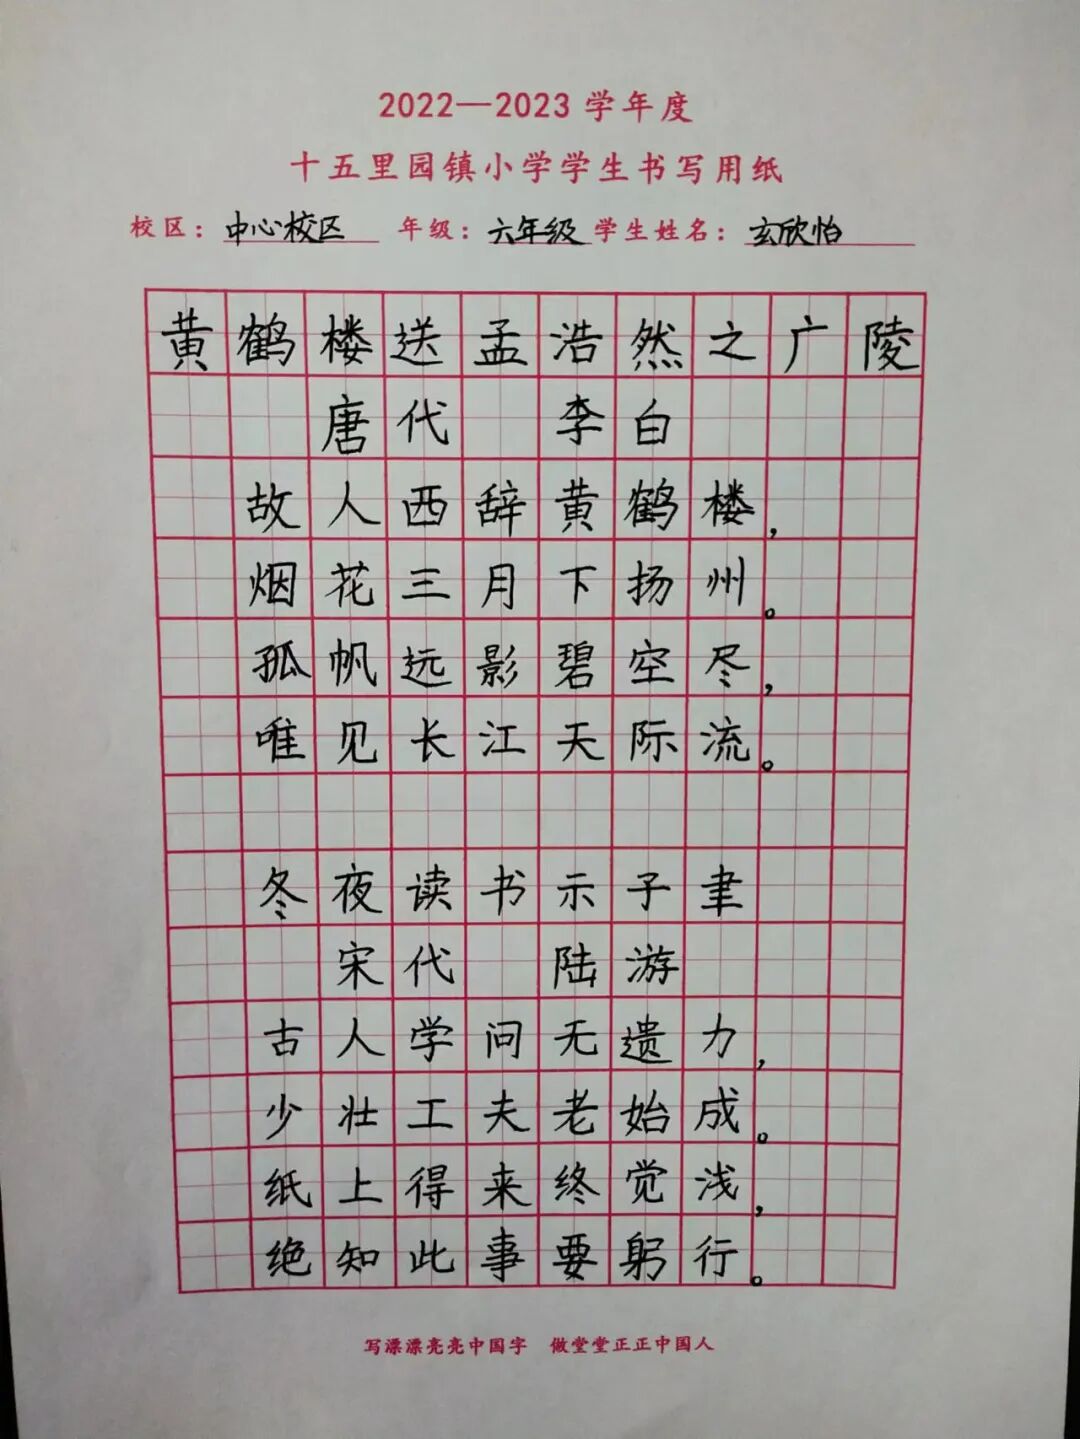 2022—2023学年度
十五里园镇小学学生书写用纸
校区：中心校区 年级：六年级 学生姓名：玄欣怡
黄鹤楼送孟浩然之广陵
唐代 李白
故人西辞黄鹤楼，
烟花三月下扬州。
孤帆远影碧空尽，
唯见长江天际流。
冬夜读书示子聿
宋代 陆游
古人学问无遗力，
少壮工夫老始成。
纸上得来终觉浅，
绝知此事要躬行。
写漂漂亮亮中国字 做堂堂正正中国人